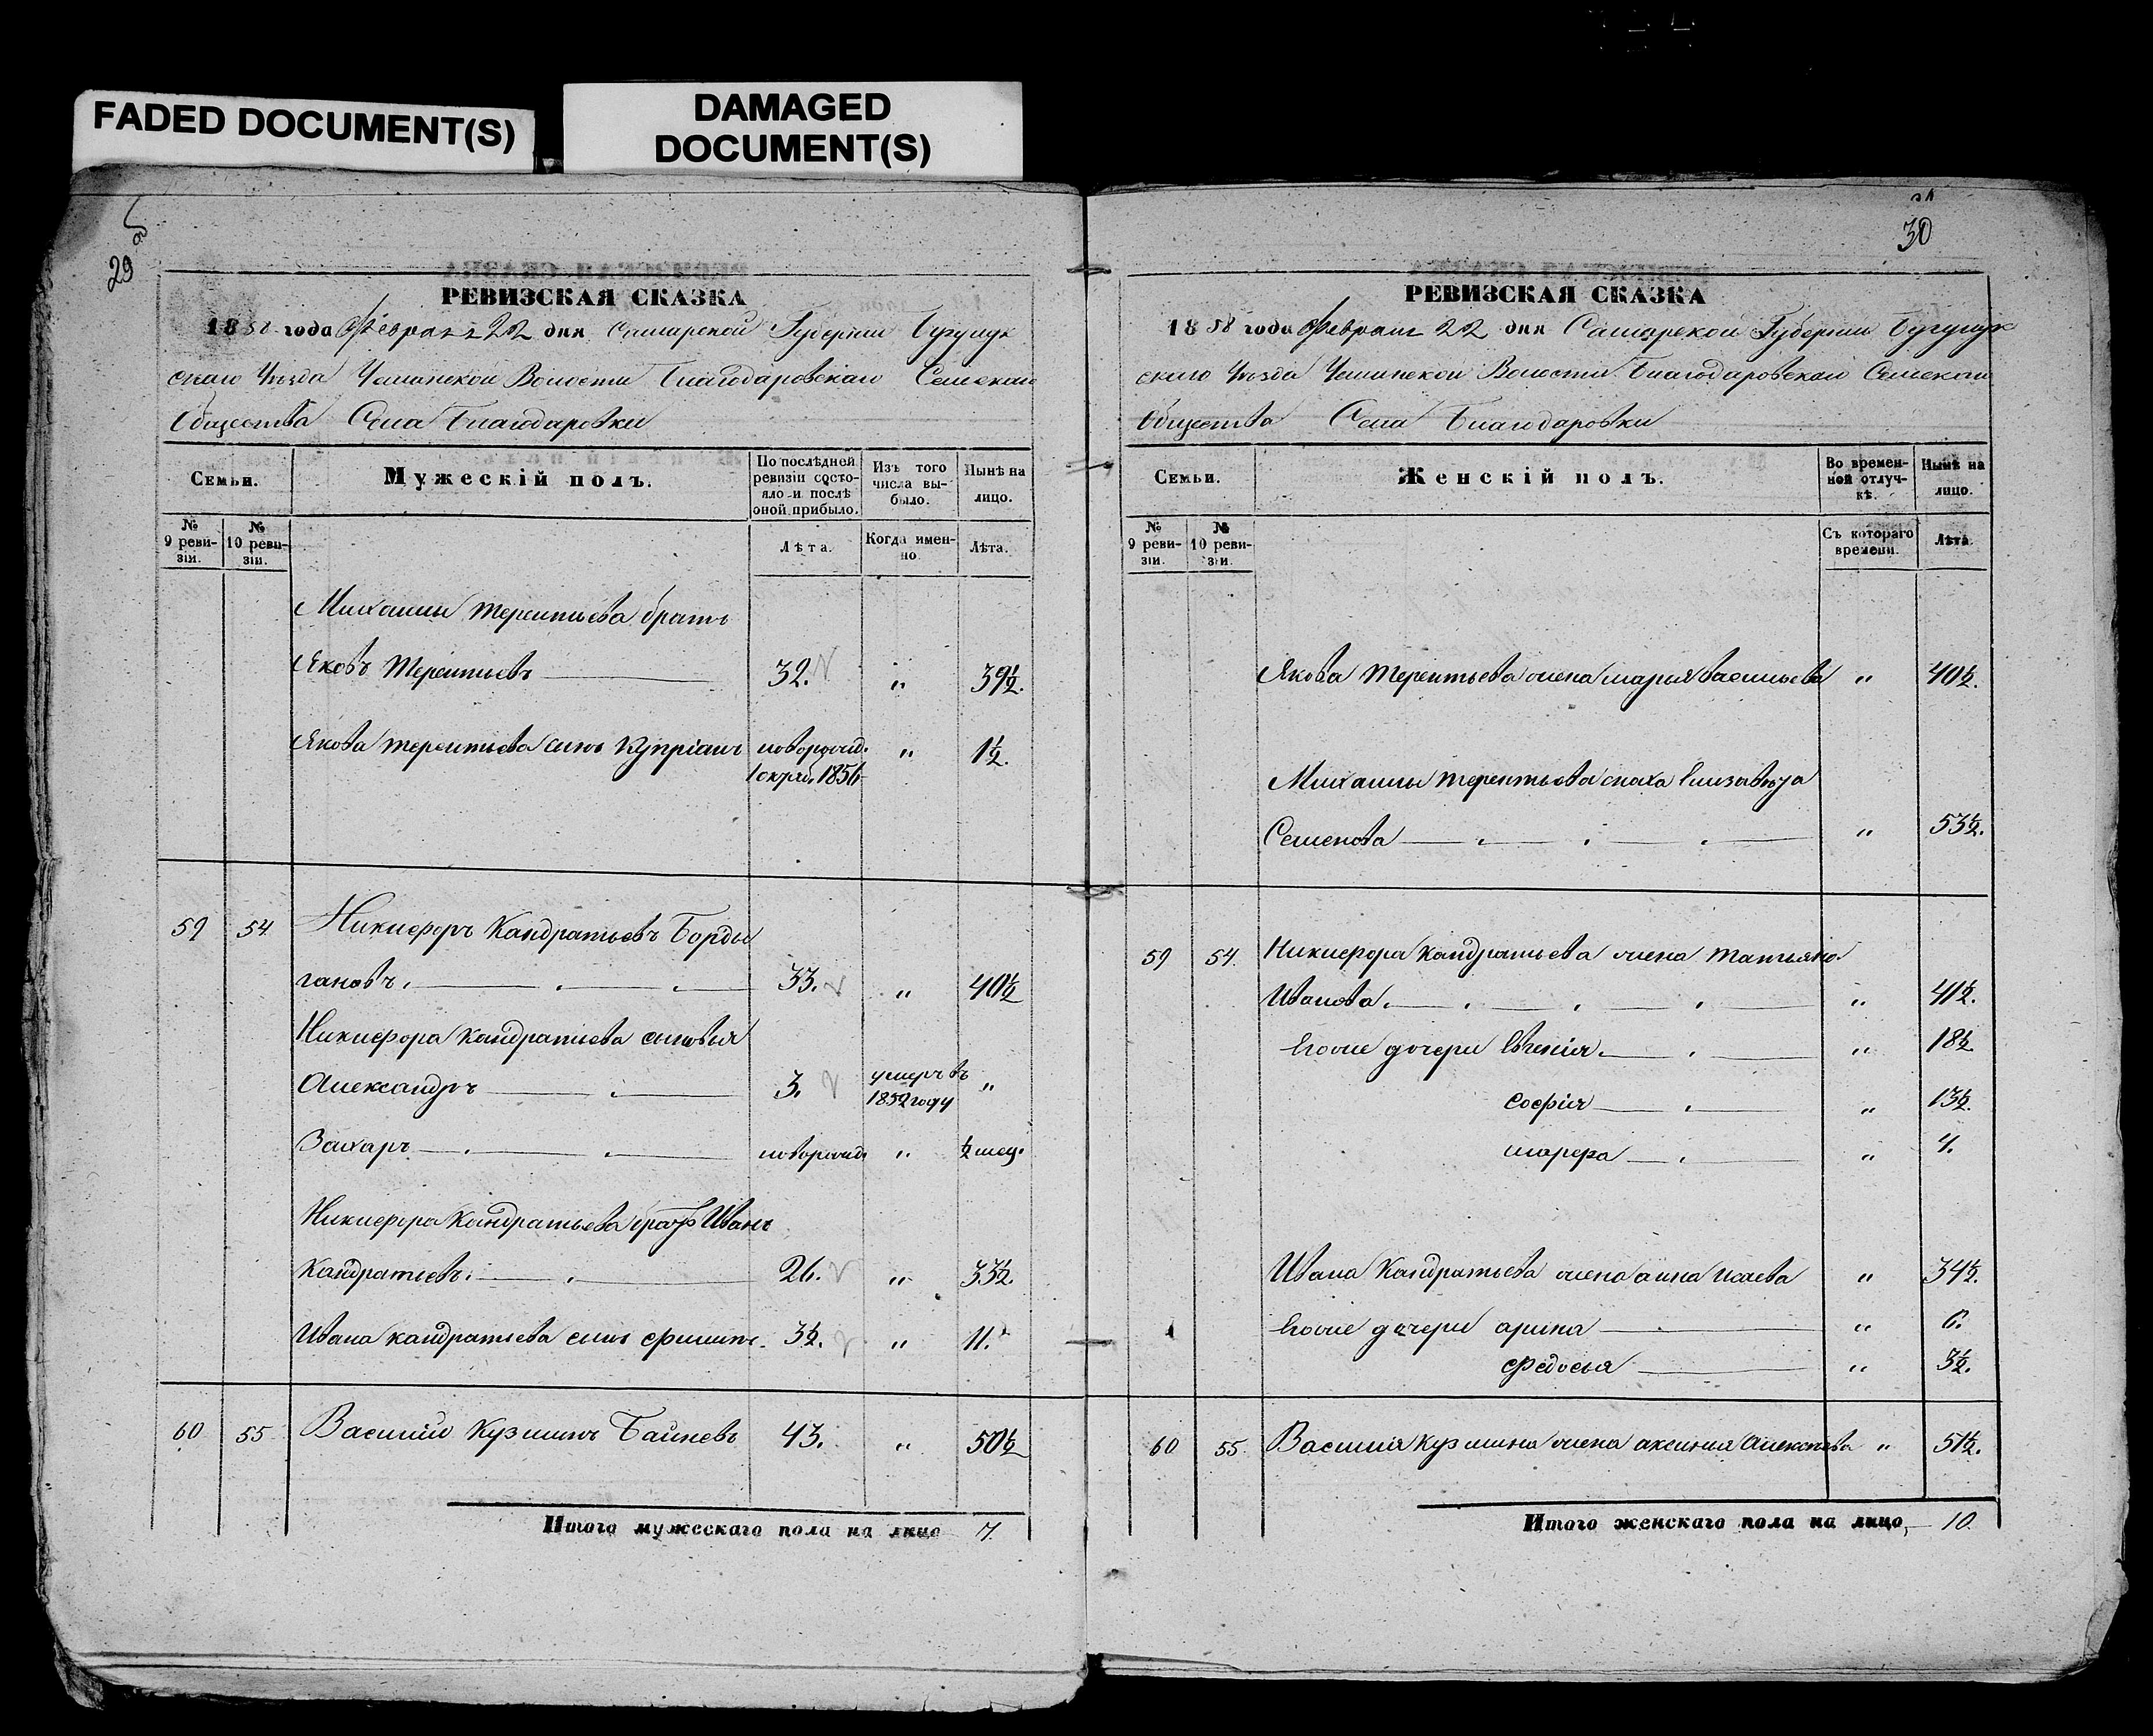 FADED DOCUMENT(S)
DAMAGED
DOCUMENT(S)
29
РЕВИЗСКАЯ СКАЗКА
1858 года Февраля 22 дня Самарской Губернии Бугульм
скаго Уѣзда Волости Благодаровскаго Сельскаго
Общества Села Благодаровки
Семьи.
Мужескій полъ.
По послѣдней ревизіи состояло и послѣ оной прибыло.
Изъ того числа выбыло.
Нынѣ на лицо.
№ 9 ревизіи.
№ 10 ревизіи.
Лѣта.
Когда именно.
Лѣта.
Михаилы Терентьева братъ
Яковъ Терентьевъ 32. " 39½.
Якова Терентьева сынъ Купріанъ новорожд. " 1½.
1856
59 54 Никифоръ Кандратьевъ Борды
гановъ. 33. " 40½
Никифора Кандратьева сыновья
Александръ 3. умеръ въ "
1852 году
Захаръ новорожд. " ½ мец.
Никифора Кандратьева братъ Иванъ
Кандратьевъ. 26. " 33½.
Ивана Кандратьева сынъ Филипъ. 3½. " 11.
60 55 Василий Кузминъ Байневъ 43. " 50½
Итого мужескаго пола на лицо 7.
30
РЕВИЗСКАЯ СКАЗКА
1858 года Февраля 22 дня Самарской Губернии
скаго Уѣзда Волости Благодаровскаго Сельскаго
Общества Села Благодаровки
Семьи.
Женскій полъ.
Во временной отлучкѣ.
Нынѣ на лицо.
№ 9 ревизіи.
№ 10 ревизіи.
Съ котораго времени.
Лѣта.
Якова Терентьева жена Марья Васильева " 40½.
Михаилы Терентьева сноха Елизавѣта
Семенова " 53½.
59 54. Никифора Кандратьева жена Татьяна
Иванова. " 41½.
Ихоже дочери Евгенія. " 18½.
Софія " 13½.
Марфа " 4.
Ивана Кандратьева жена Анна Исаева " 34½.
Ихоже дочери Арина " 6.
Федосья " 3½.
60 55. Василия Кузмина жена Аксиния Алексѣева " 51½.
Итого женскаго пола на лицо, 10.